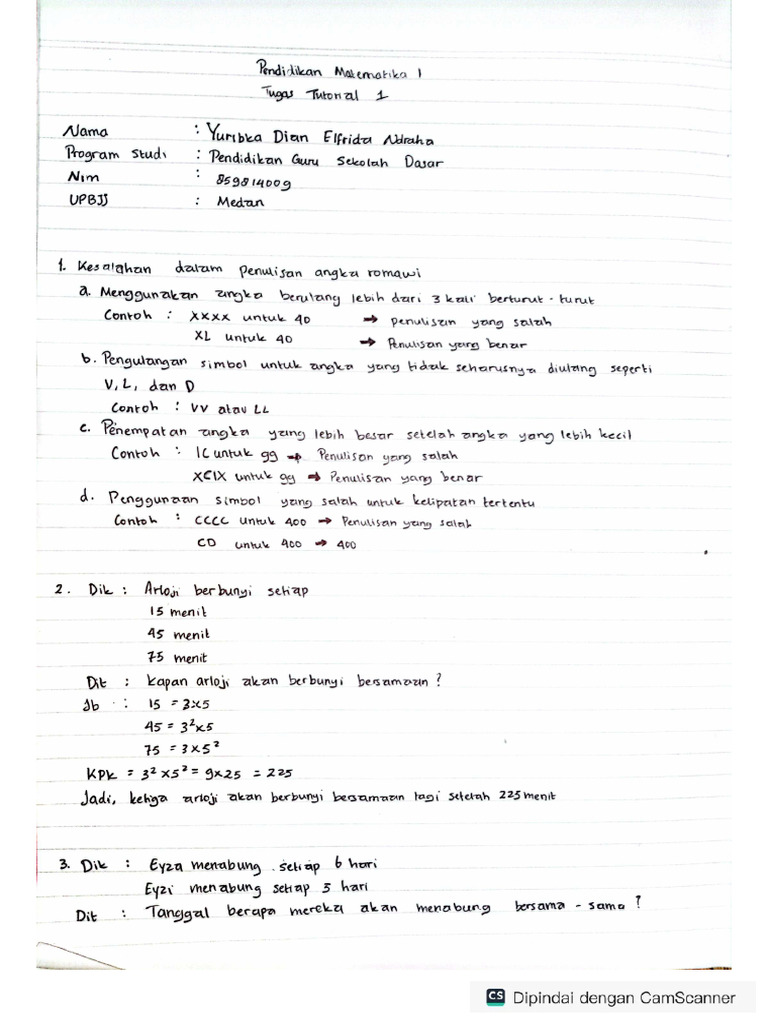 Pendidikan Matematika 1
Tugas Tutorial 1
Nama : Yuribka Dian Elfrida Ndraha
Program Studi : Pendidikan Guru Sekolah Dasar
Nim : 859814009
UPBJJ : Medan
1. Kesalahan dalam penulisan angka romawi
a. Menggunakan angka berulang lebih dari 3 kali berturut-turut
Contoh : XXXX untuk 40 → penulisan yang salah
XL untuk 40 → Penulisan yang benar
b. Pengulangan simbol untuk angka yang tidak seharusnya diulang seperti
V, L, dan D
Contoh : VV atau LL
c. Penempatan angka yang lebih besar setelah angka yang lebih kecil
Contoh : IC untuk 99 → Penulisan yang salah
XCIX untuk 99 → Penulisan yang benar
d. Penggunaan simbol yang salah untuk kelipatan tertentu
Contoh : CCCC untuk 400 → Penulisan yang salah
CD untuk 400 → 400
2. Dik : Arloji berbunyi setiap
15 menit
45 menit
75 menit
Dit : Kapan arloji akan berbunyi bersamaan ?
Jb : 15 = 3x5
45 = 3²x5
75 = 3x5²
KPK = 3²x5² = 9x25 = 225
Jadi, ketiga arloji akan berbunyi bersamaan lagi setelah 225 menit
3. Dik : Eyza menabung setiap 6 hari
Eyzi menabung setiap 5 hari
Dit : Tanggal berapa mereka akan menabung bersama-sama ?
CS Dipindai dengan CamScanner